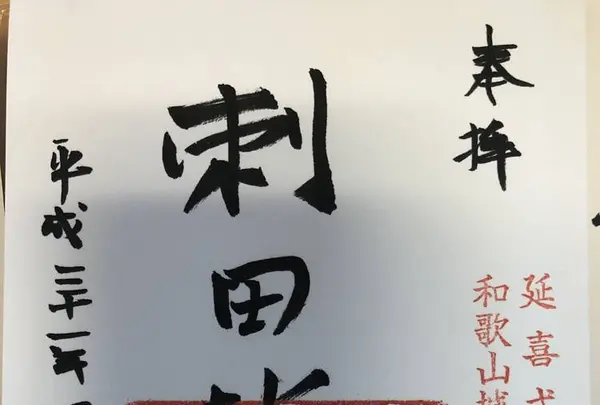 奉拝
延喜式
和歌山城
刺田
平成三十一年